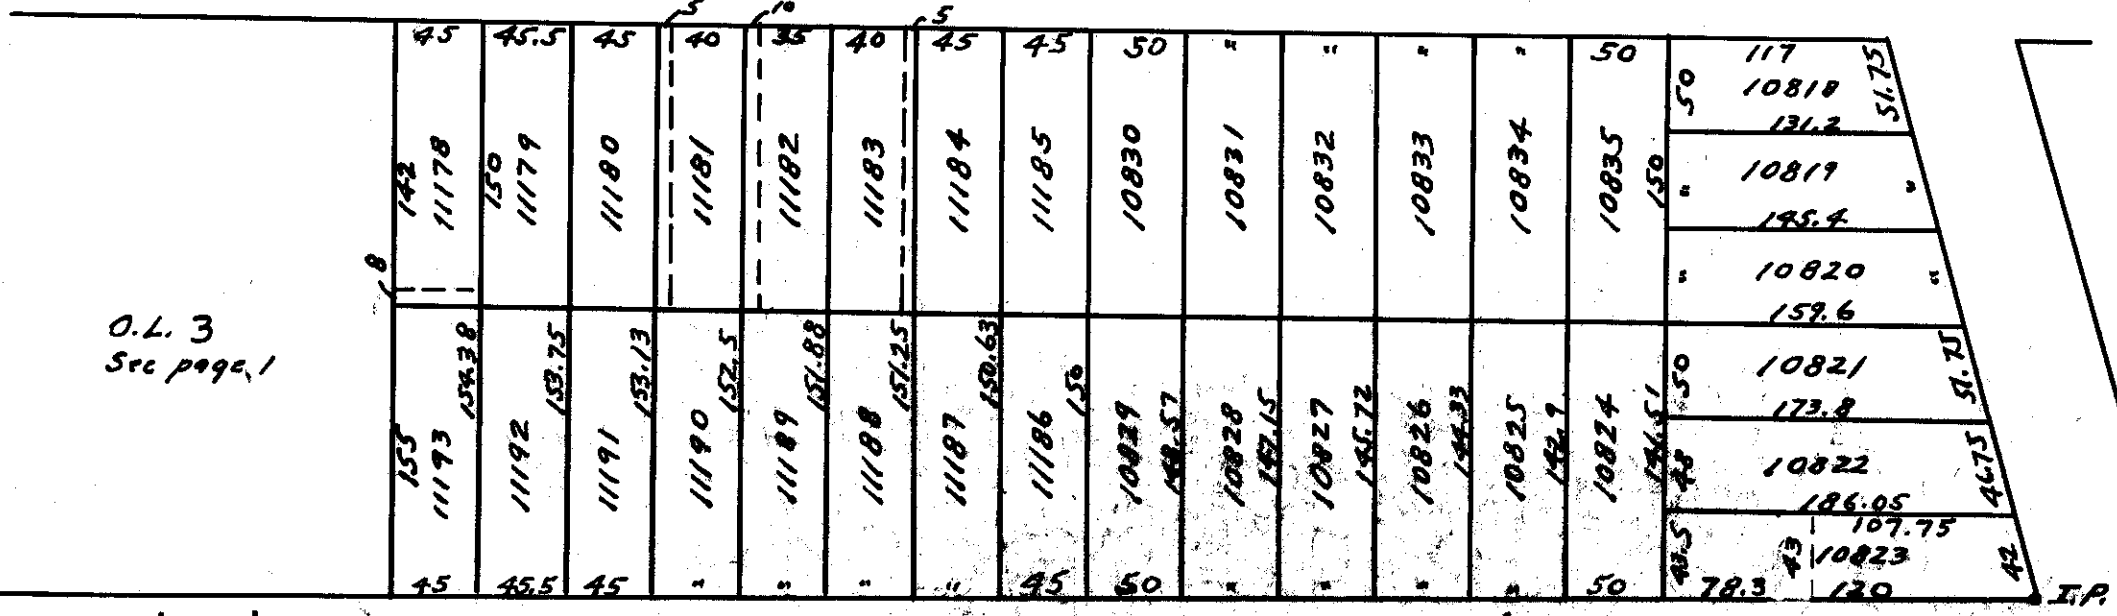 5 10 5
45 45.5 45 40 35 40 45 45 50 " " " " 50
142 11178
150 11179
11180
11181
11182
11183
11184
11185
10830
10831
10832
10833
10834
10835 150
8
117
50 10818 51.75
131.2
" 10819 "
145.4
" 10820 "
159.6
50 10821 51.75
173.8
48 10822 46.75
186.05
107.75
43.5 43 10823 42
78.3 120 I.P.
O.L. 3
See page 1
155 11193 154.38
11192 153.75
11191 153.13
11190 152.5
11189 151.88
11188 151.25
11187 150.63
11186 150
10829 148.57
10828 147.15
10827 145.72
10826 144.33
10825 142.9
10824 141.51
45 45.5 45 " " " " 45 50 " " " " 50